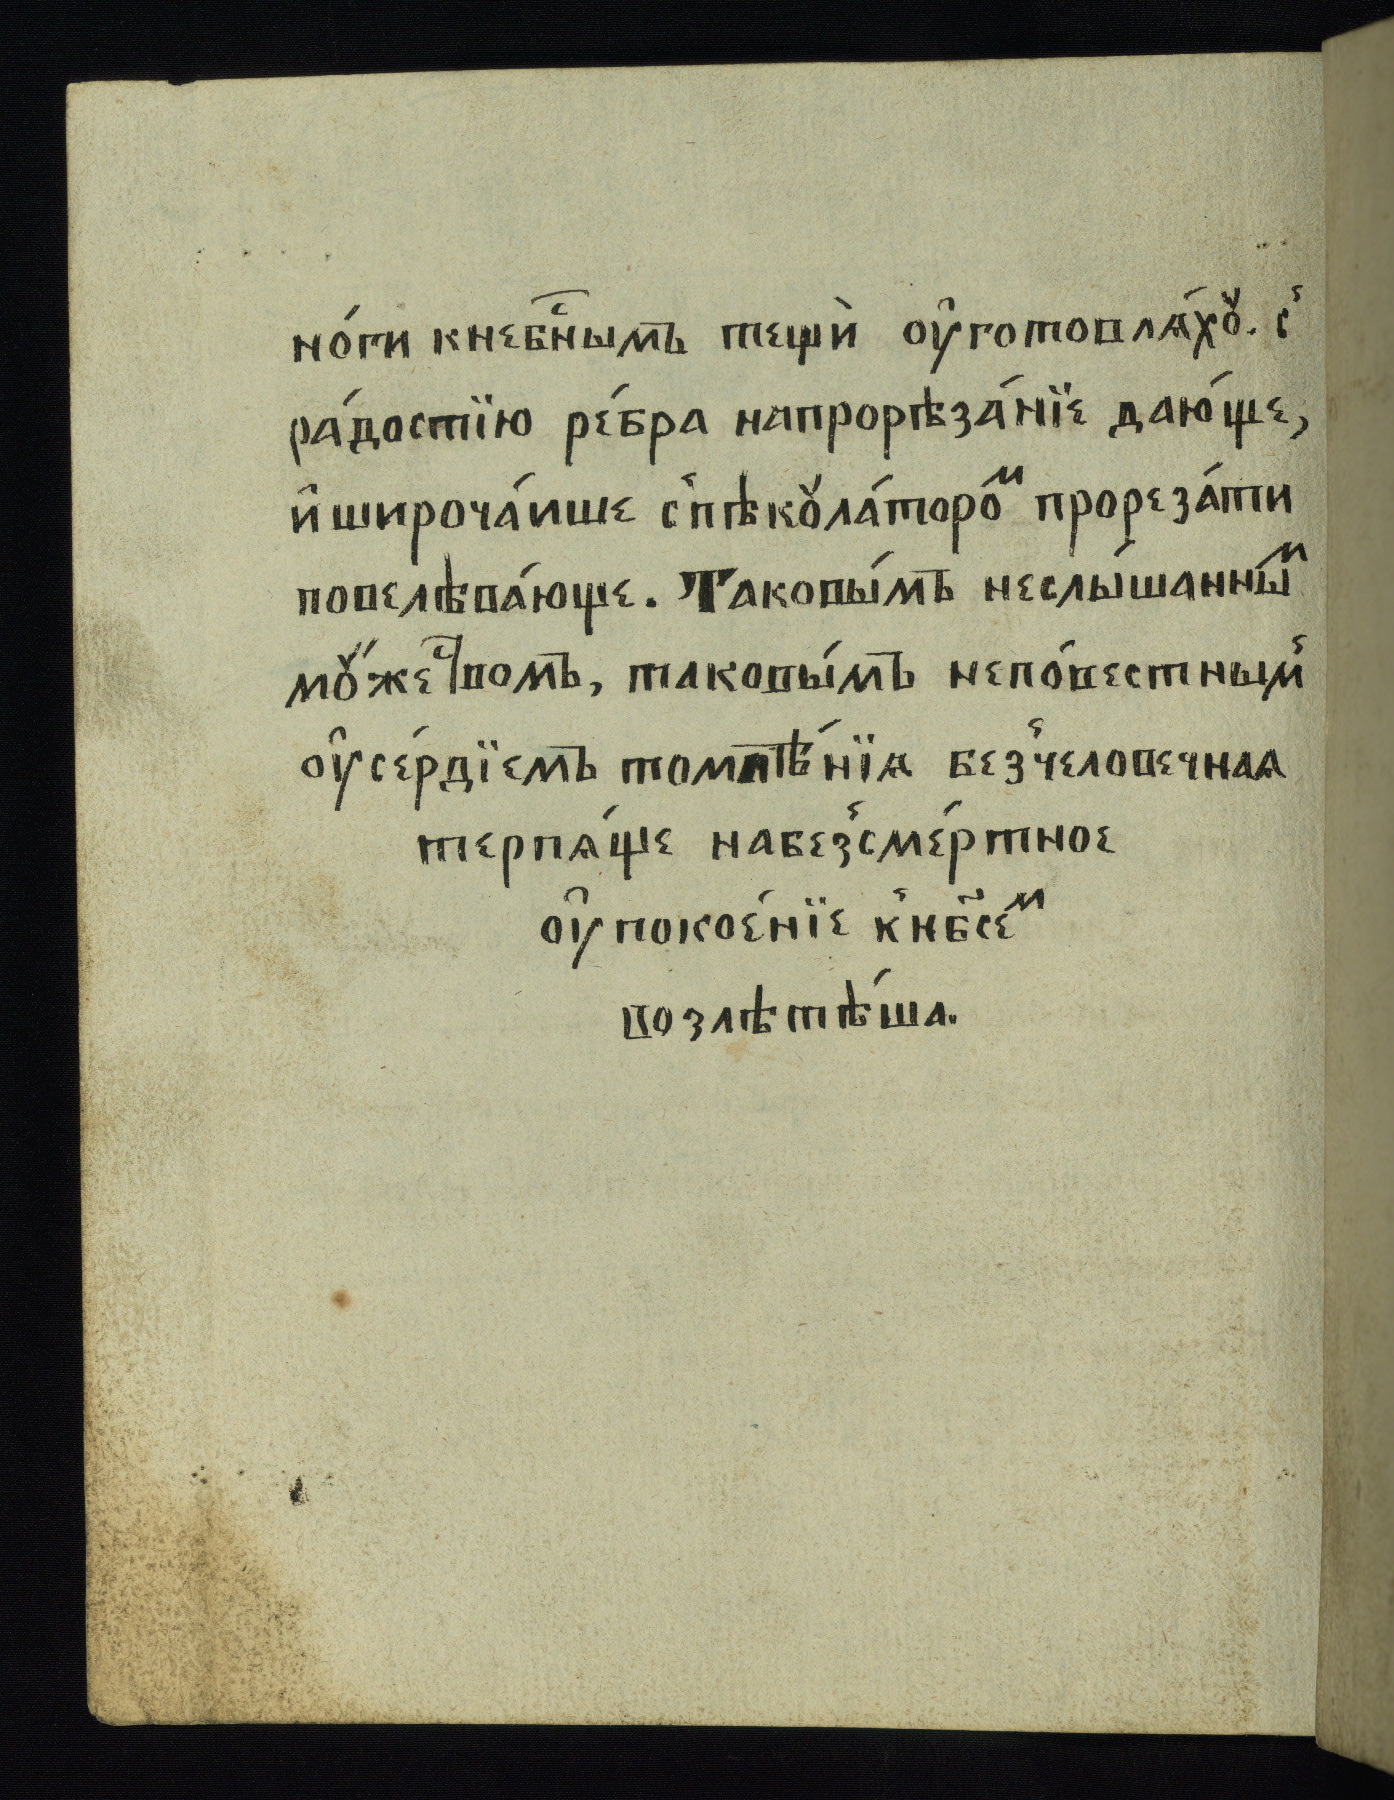 но́ги кнеб҇ны́мъ тещѝ ᲂу҆готовлѧ́хꙋ. с̾
ра́достїю ре́бра напрорѣза́нїе даю́ще,
и҆широча́ише с̾пѣкꙋла́тороⷨ прореза́ти
повелѣва́юще. Таковы́мъ неслы́шанныⷨ
мꙋ́жеⷭ҇твомъ, таковы́мъ непо́вестным̾
ᲂу҆се́рдїемъ томлѣ́нїѧ без̾человечнаѧ
терпѧ́ще набез̾сме́ртное
ᲂу҆покое́нїе к̾нб҃сеⷨ
возлѣтѣ́ша.